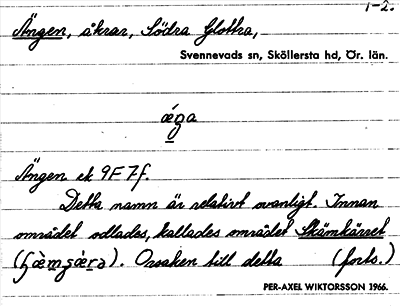 1-2.
Ängen, åkrar, Södra Glottra,
Svennevads sn, Sköllersta hd, Ör. län.
Ängen ek 9F 7f.
Detta namn är relativt ovanligt. Innan
området odlades, kallades området Skämkärret
Orsaken till detta (forts.)
PER-AXEL WIKTORSSON 1966.